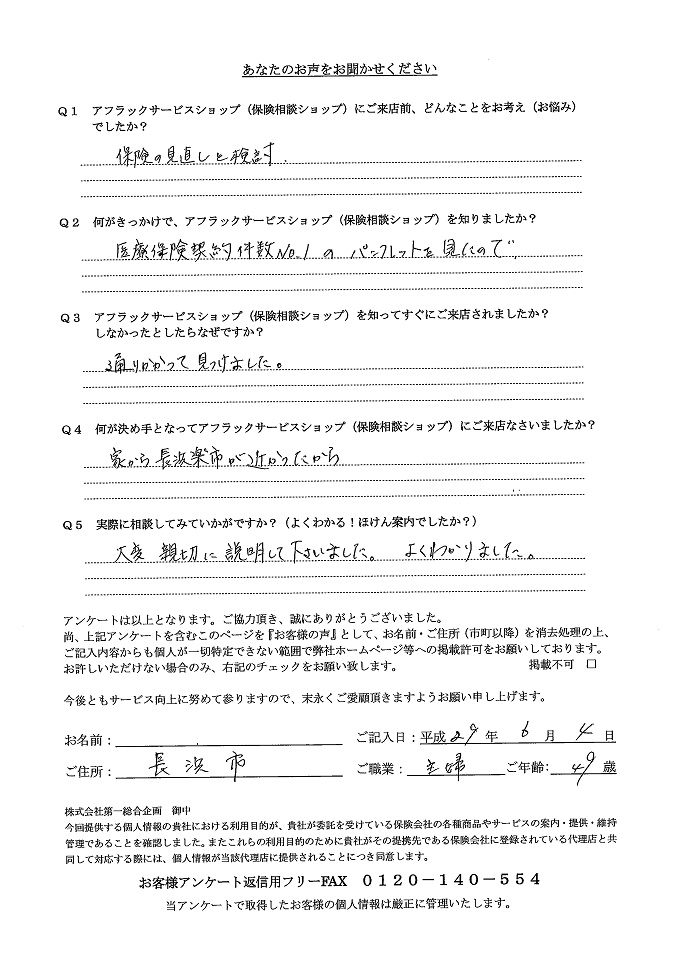 あなたのお声をお聞かせください
Q1 アフラックサービスショップ(保険相談ショップ)にご来店前、どんなことをお考え(お悩み)
でしたか?
保険の見直しを検討.
Q2 何がきっかけで、アフラックサービスショップ(保険相談ショップ)を知りましたか?
医療保険契約件数No.1のパンフレットを見たので
Q3 アフラックサービスショップ(保険相談ショップ)を知ってすぐにご来店されましたか?
しなかったとしたらなぜですか?
通りかかって見つけました。
Q4 何が決め手となってアフラックサービスショップ(保険相談ショップ)にご来店なさいましたか?
家から長浜楽市が近かったから
Q5 実際に相談してみていかがですか?(よくわかる!ほけん案内でしたか?)
大変親切に説明して下さいました。 よくわかりました。
アンケートは以上となります。ご協力頂き、誠にありがとうございました。
尚、上記アンケートを含むこのページを『お客様の声』として、お名前・ご住所(市町以降)を消去処理の上、
ご記入内容からも個人が一切特定できない範囲で弊社ホームページ等への掲載許可をお願いしております。
お許しいただけない場合のみ、右記のチェックをお願い致します。 掲載不可 □
今後ともサービス向上に努めて参りますので、末永くご愛顧頂きますようお願い申し上げます。
お名前: ご記入日:平成29年 6月 4日
ご住所: 長浜市 ご職業: 主婦 ご年齢: 49歳
株式会社第一総合企画 御中
今回提供する個人情報の貴社における利用目的が、貴社が委託を受けている保険会社の各種商品やサービスの案内・提供・維持
管理であることを確認しました。またこれらの利用目的のために貴社がその提携先である保険会社に登録されている代理店と共
同して対応する際には、個人情報が当該代理店に提供されることにつき同意します。
お客様アンケート返信用フリーFAX 0120-140-554
当アンケートで取得したお客様の個人情報は厳正に管理いたします。